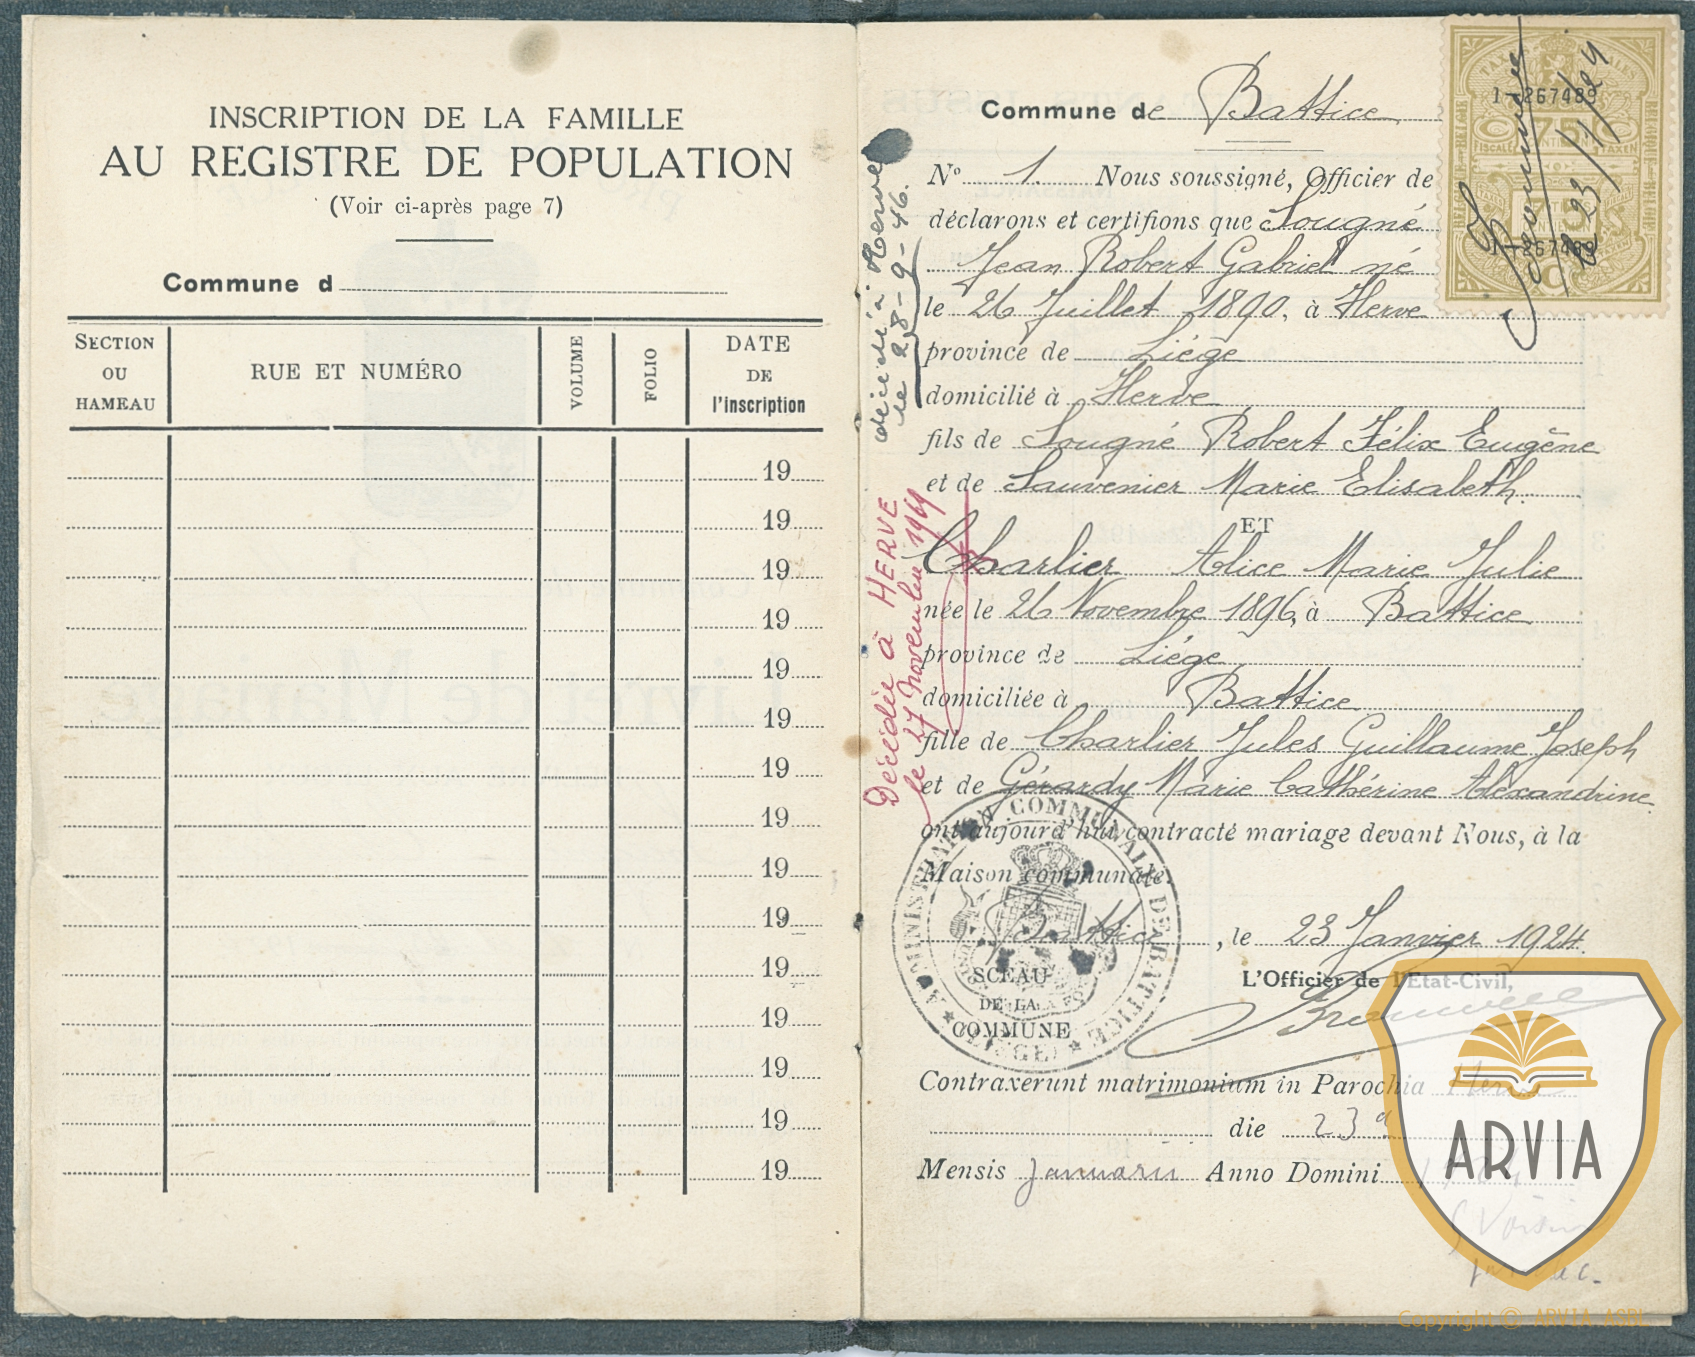 INSCRIPTION DE LA FAMILLE
AU REGISTRE DE POPULATION
(Voir ci-après page 7)
Commune d
SECTION OU HAMEAU
RUE ET NUMÉRO
VOLUME
FOLIO
DATE DE l'inscription
19
19
19
19
19
19
19
19
19
19
19
19
19
19
19
Commune de Battice
N° 1. Nous soussigné, Officier de
déclarons et certifions que Sougné
Jean Robert Gabriel né
le 26 Juillet 1890, à Herve
province de Liége
domicilié à Herve
fils de Sougné Robert Félix Eugène
et de Sauvenier Marie Elisabeth.
ET
Charlier Alice Marie Julie
née le 26 Novembre 1896, à Battice
province de Liége
domiciliée à Battice
fille de Charlier Jules Guillaume Joseph
et de Gérardy Marie Catherine Alexandrine
ont aujourd'hui contracté mariage devant Nous, à la
Maison communale.
Battice, le 23 Janvier 1924.
L'Officier de l'Etat-Civil,
SCEAU
DE LA
COMMUNE
ADMINISTRATION COMMUNALE DE BATTICE
(LIÉGE)
Contraxerunt matrimonium in Parochia
die 23a
Mensis Januarii Anno Domini
décédé à Herve
le 28-9-46.
Décédée à HERVE
le 27 Novembre 1969
1 267489
75
FISCALE
BELGIQUE
1 267489
ARVIA
Copyright © ARVIA ASBL